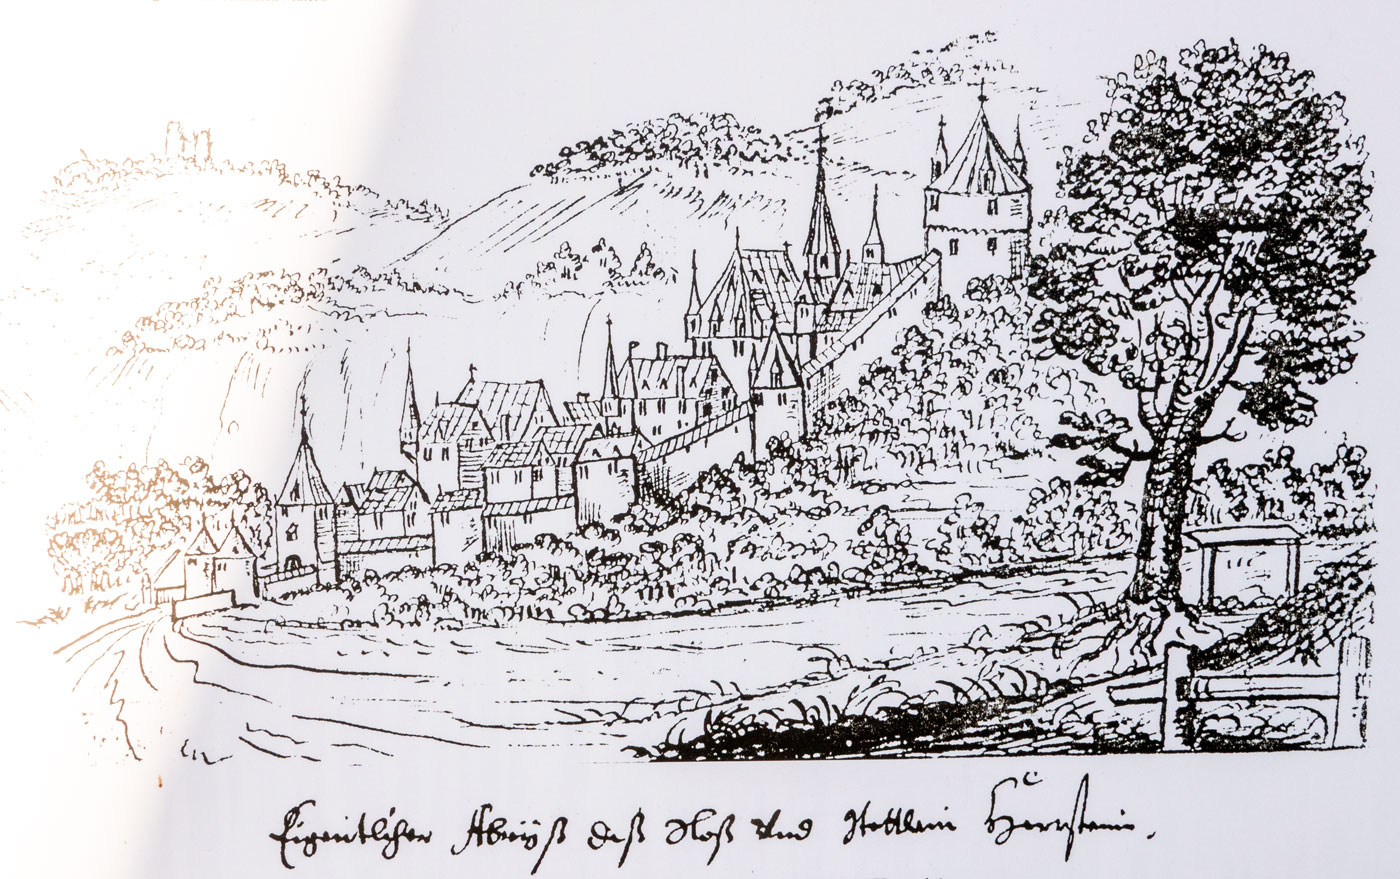 Eigentlicher Abryß deß Sloß Vnd Stettlein Härrstein.